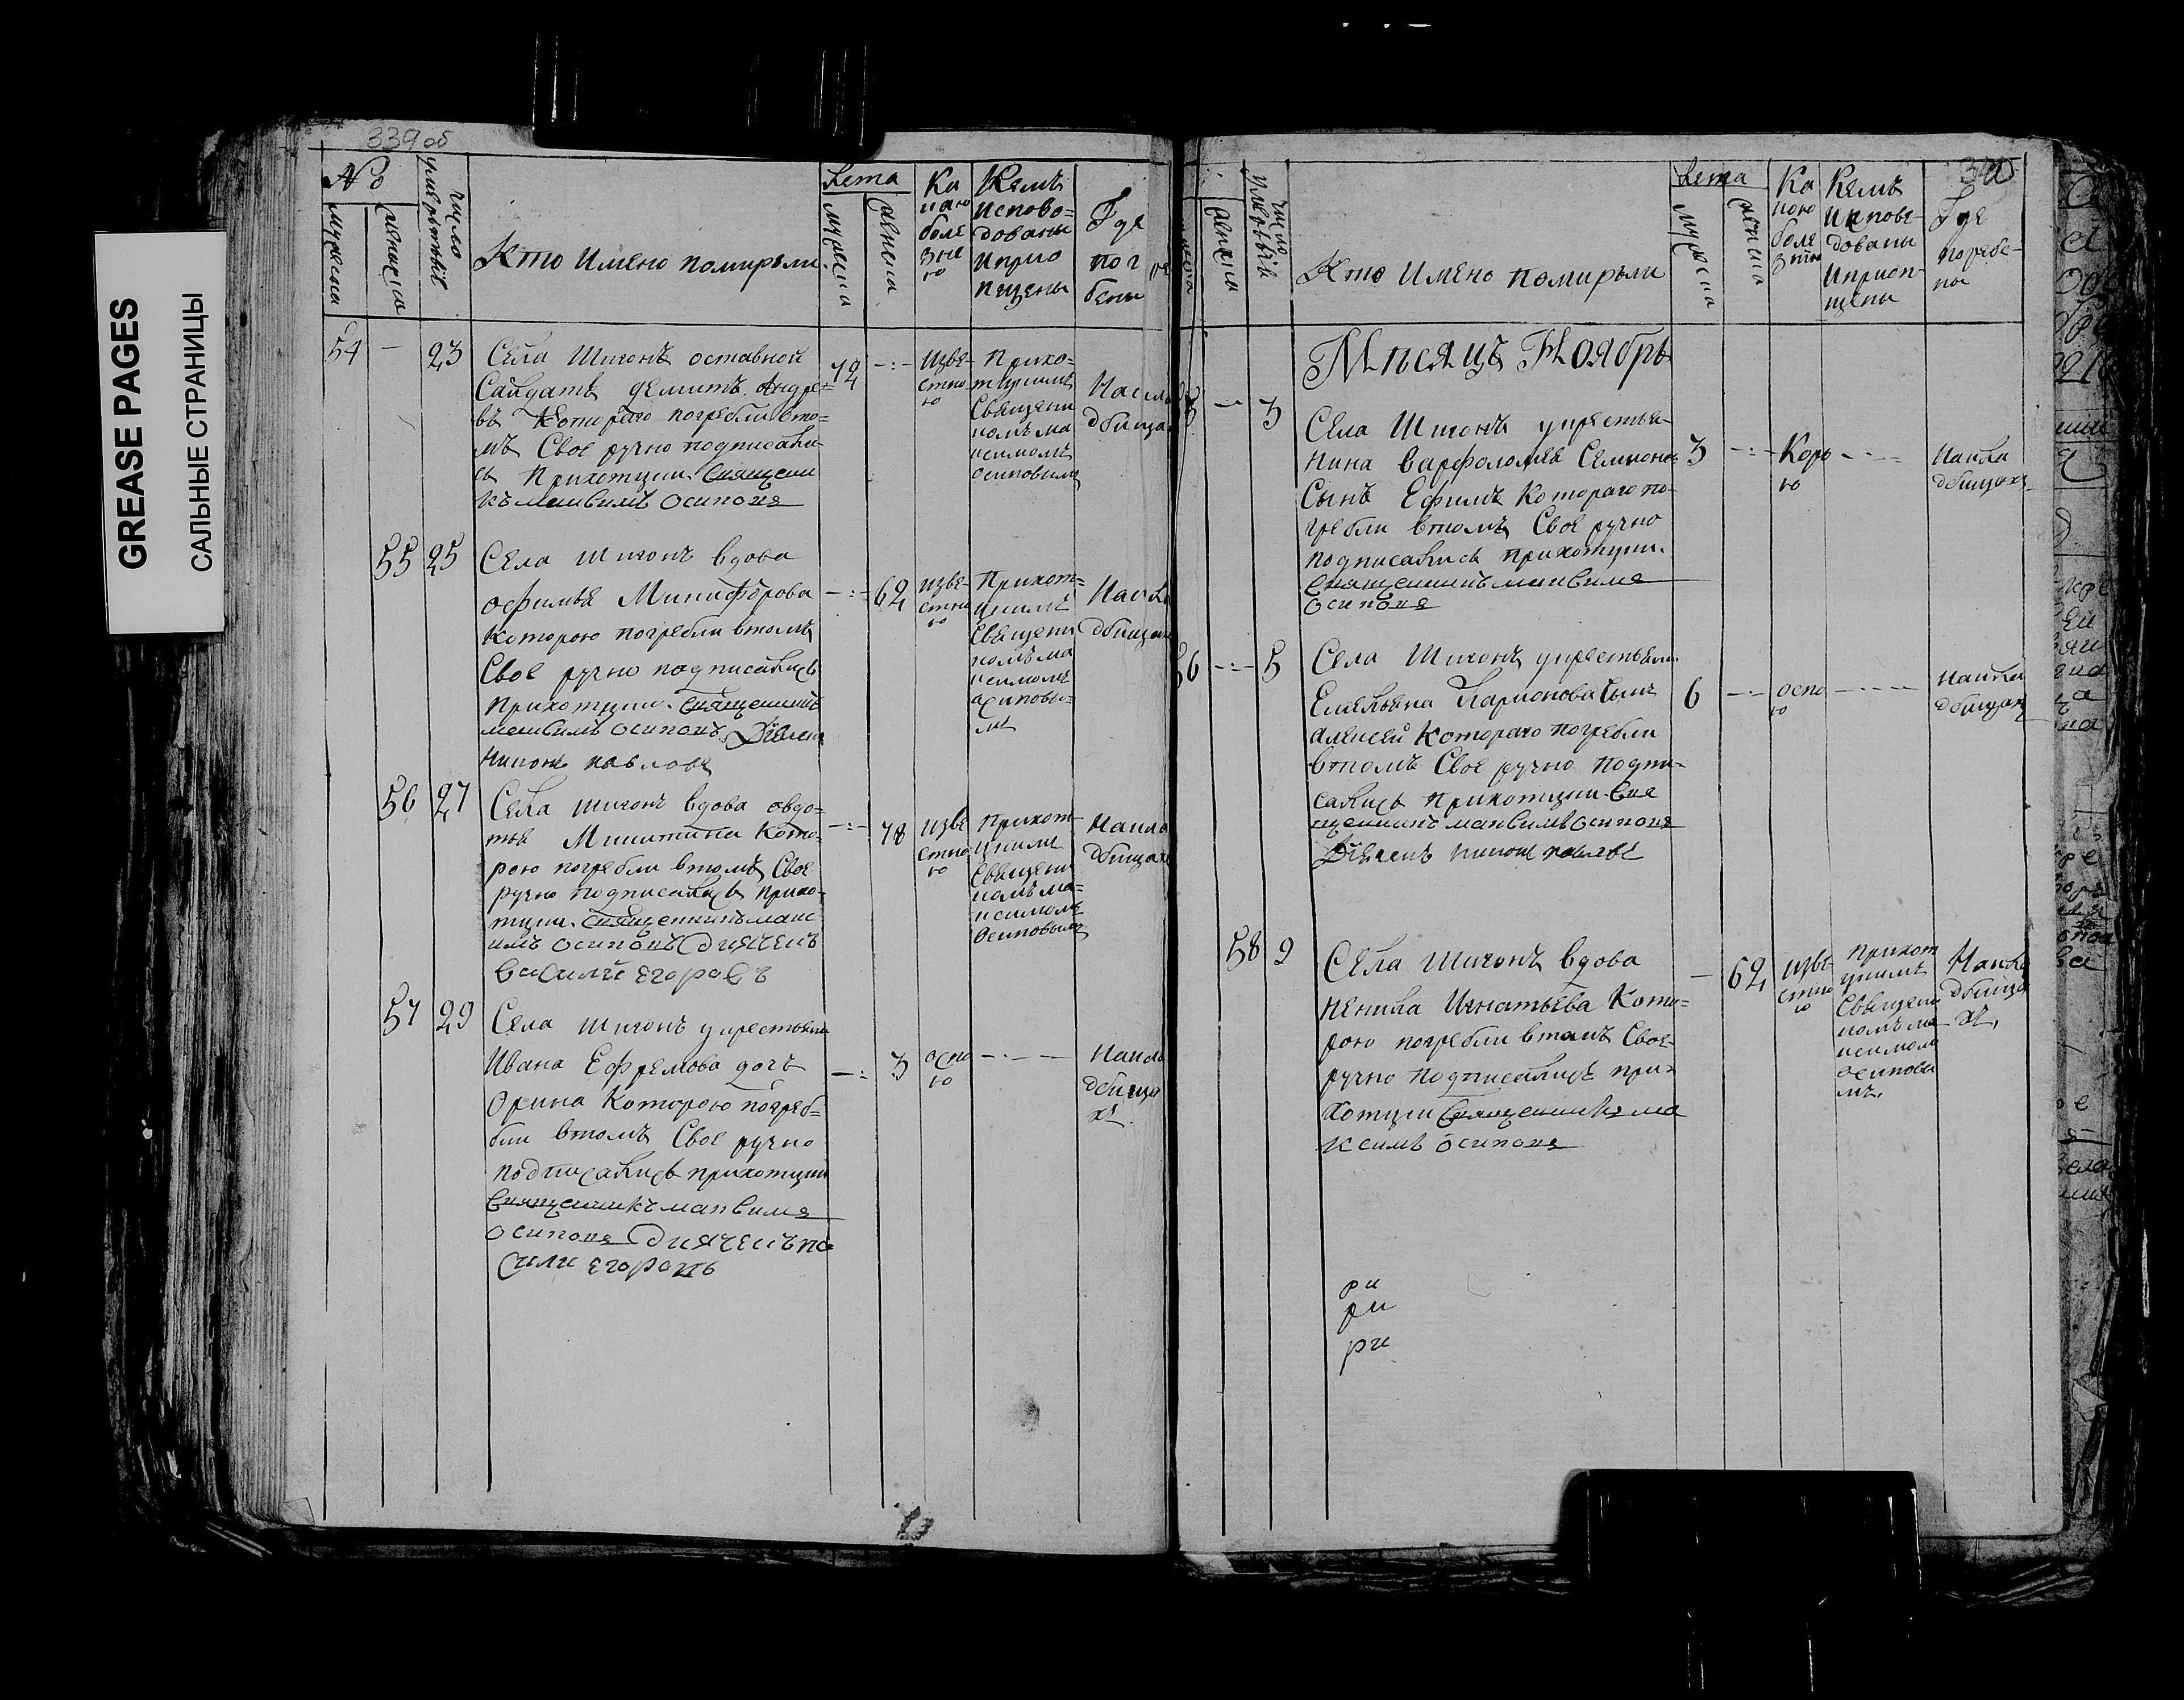 GREASE PAGES
САЛЬНЫЕ СТРАНИЦЫ
339 об
№
мужеска
женска
число умерътвіе
Кто Имено помирѣли
Лета
мужеска
женска
Ка
кою
боле
зне
ю
Кемъ
испове=
дованы
иприо
пщены
Где
пог
бены
54 — 23
Села Шигонъ оставной
Салдатъ демитъ Андре=
въ Котораго погребли вто=
мъ Свое ручно подписали
сь Прихотции Священи
къ максимъ осиповъ
72 -:-
Изве=
стно
ю
Прихо=
тцкимъ
Священи
комъ ма
ксимомъ
осиповымъ
Накла
дбища
55 25
Села шигонъ вдова
офимья Микифорова
которою погребли втомъ
Свое ручно подписались
прихотции. Священникъ
максимъ осиповъ Діякон
никонъ павловъ
-:- 62
изве
стно
ю
Прихот=
цкимъ
Священи
комъ ма
ксимомъ
осиповы=
мъ
Накла
дбищах
56 27
Села шигонъ вдова овдо=
тья Микитина Кото=
рою погребли втомъ Свое
ручно подписались прихо=
тции. Священникъ макс
имъ осиповъ Диячекъ
василий егоровъ
-:- 78
изве
стно
ю
прихот
цкимъ
Священи
комъ ма=
ксимомъ
осиповымъ
Накла
дбищах
57 29
Села шигонъ укрестьяни
Ивана Ефремова дочь
Орина Которою погреб=
бли втомъ Свое ручно
подписались прихотции
Священникъ максимъ
осиповъ Диячекъ ва
силий егоровъ
-: 3
оспо
ю
-.-
Накла
дбища
хъ.
340
женска
число умерътвіи
Кто Имено помирѣли
Лета
мужеска
женска
Ка
кою
боле
зню
Кемъ
испове=
дованы
иприоп=
щены
Где
погребе=
ны
Мѣсяцъ Ноябрь
— 3
Села Шигонъ укрестья=
нина Варфоломея Семионов
Сынъ Ефимъ Котораго по=
гребли втомъ Свое ручно
подписались прихотции.
Священникъ максимъ
осиповъ
3 -:-
Коръ
ю
-.-
Накла
дбищахъ
56 -:- 5
Села Шигонъ укрестьяни
Емельяна Ларионова Сынъ
алексей Котораго погребли
втомъ Свое ручно подпи=
сались прихотции Свя
щенникъ максимъ осиповъ
Діяконъ никонъ павловъ
6 -.-
оспо
ю
-.-
Накла
дбищах
58 9
Села шигонъ вдова
ненила Игнатьева Кото=
рою погребли втомъ Свое=
ручно подписались при=
хотции Священникъ ма
ксимъ осиповъ
— 62
изве
стно
ю
прихот
цкимъ
Священи
комъ ма
ксимомъ
осиповы
мъ.
Накла
дбища
хъ,
ри
ри
ри